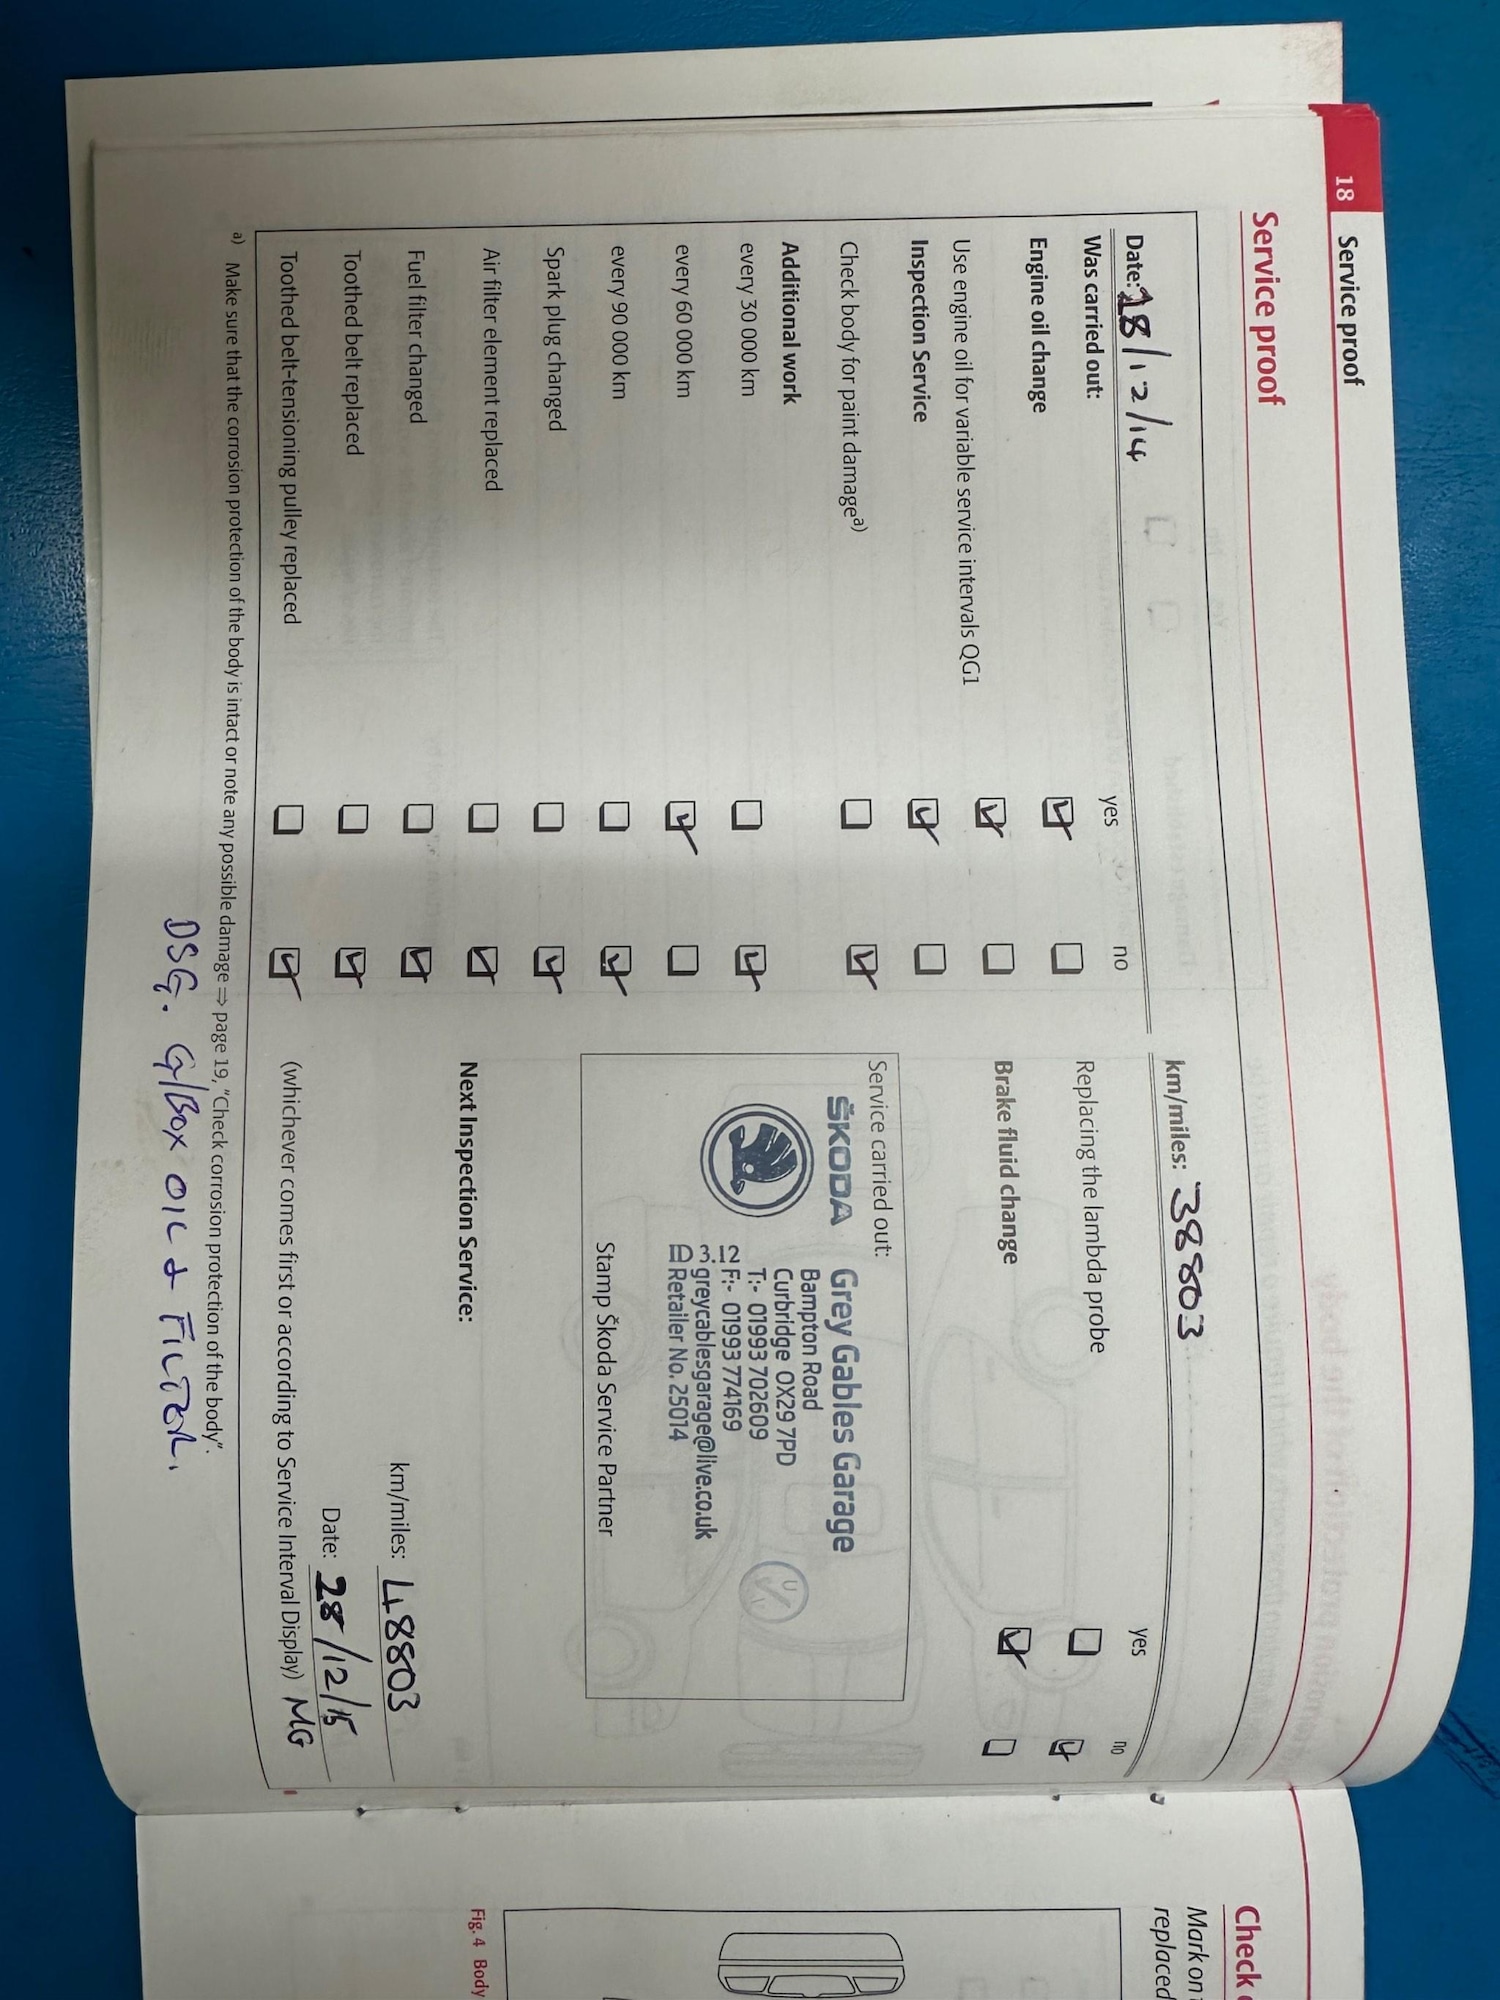 18 Service proof
Service proof
Date: 18/12/14
km/miles: 38803
Was carried out: yes no
Engine oil change
Use engine oil for variable service intervals QG1
Inspection Service
Check body for paint damage a)
Additional work
every 30 000 km
every 60 000 km
every 90 000 km
Spark plug changed
Air filter element replaced
Fuel filter changed
Toothed belt replaced
Toothed belt-tensioning pulley replaced
yes no
Replacing the lambda probe
Brake fluid change
Service carried out:
ŠKODA
Grey Gables Garage
Bampton Road
Curbridge OX29 7PD
T:- 01993 702609
3.12 F:- 01993 774169
greycablesgarage@live.co.uk
Retailer No. 25014
Stamp Škoda Service Partner
Next Inspection Service:
km/miles: 48803
Date: 28/12/15
(whichever comes first or according to Service Interval Display) MG
a) Make sure that the corrosion protection of the body is intact or note any possible damage ⇒ page 19, "Check corrosion protection of the body".
DSG. G/BOX OIL & FILTER.
Check
Mark on
replaced
Fig. 4 Body